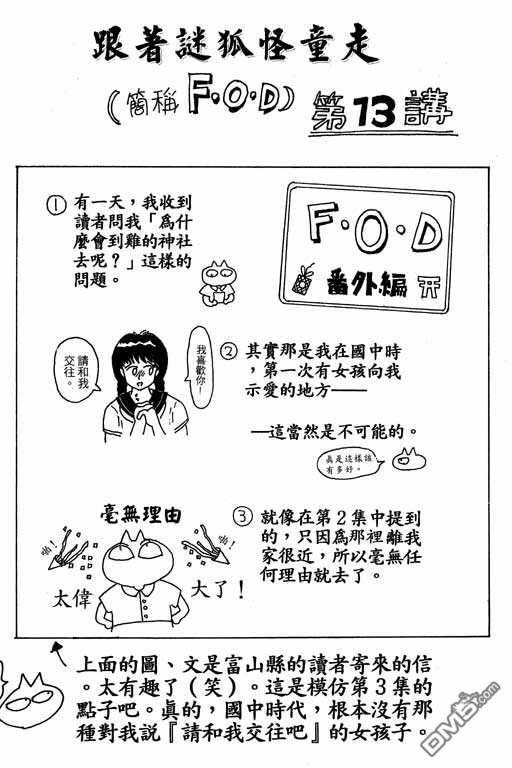 跟著謎狐怪童走
(簡稱F·O·D) 第13講
①有一天，我收到
讀者問我「為什
麼會到雞的神社
去呢？」這樣的
問題。
F·O·D
番外編
②其實那是我在國中時
，第一次有女孩向我
示愛的地方——
我喜歡你！
請和我
交往。
—這當然是不可能的。
真是這樣該
有多好。
③就像在第2集中提到
的，只因為那裡離我
家很近，所以毫無任
何理由就去了。
毫無理由
啪！
啪！
太偉
大了！
上面的圖、文是富山縣的讀者寄來的信
。太有趣了（笑）。這是模仿第3集的
點子吧。真的，國中時代，根本沒有那
種對我說『請和我交往吧』的女孩子。